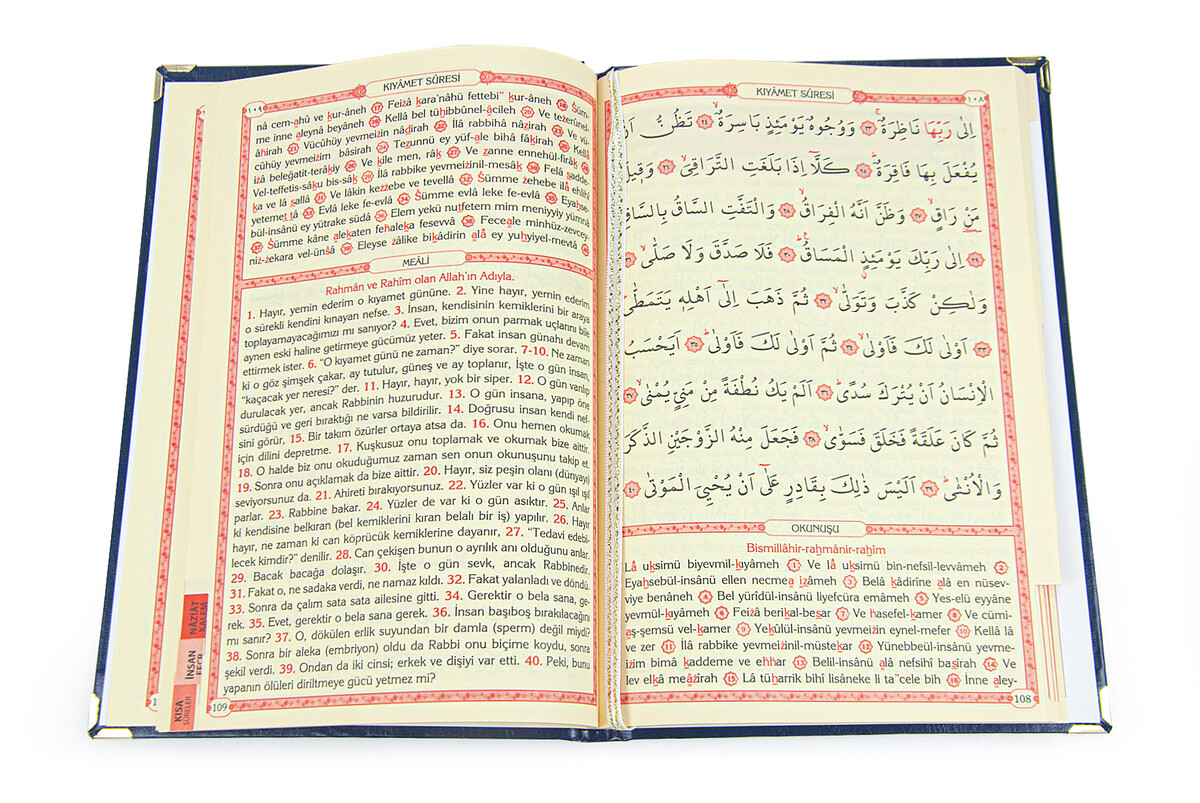 KIYÂMET SÛRESİ
١٠٨
اِلٰى رَبِّهَا نَاظِرَةٌۚ ﴿٢٣﴾ وَوُجُوهٌ يَوْمَئِذٍ بَاسِرَةٌۙ ﴿٢٤﴾ تَظُنُّ اَنْ
يُفْعَلَ بِهَا فَاقِرَةٌۜ ﴿٢٥﴾ كَلَّٓا اِذَا بَلَغَتِ التَّرَاقِيَۙ ﴿٢٦﴾ وَقٖيلَ
مَنْ رَاقٍۙ ﴿٢٧﴾ وَظَنَّ اَنَّهُ الْفِرَاقُۙ ﴿٢٨﴾ وَالْتَفَّتِ السَّاقُ بِالسَّاقِۙ
﴿٢٩﴾ اِلٰى رَبِّكَ يَوْمَئِذٍ الْمَسَاقُۜ ﴿٣٠﴾ فَلَا صَدَّقَ وَلَا صَلّٰىۙ
وَلٰكِنْ كَذَّبَ وَتَوَلّٰىۙ ﴿٣٢﴾ ثُمَّ ذَهَبَ اِلٰٓى اَهْلِهٖ يَتَمَطّٰىۜ
﴿٣٣﴾ اَوْلٰى لَكَ فَاَوْلٰىۙ ﴿٣٤﴾ ثُمَّ اَوْلٰى لَكَ فَاَوْلٰىۜ ﴿٣٥﴾ اَيَحْسَبُ
الْاِنْسَانُ اَنْ يُتْرَكَ سُدًىۜ ﴿٣٦﴾ اَلَمْ يَكُ نُطْفَةً مِنْ مَنِيٍّ يُمْنٰىۙ ﴿٣٧﴾
ثُمَّ كَانَ عَلَقَةً فَخَلَقَ فَسَوّٰىۙ ﴿٣٨﴾ فَجَعَلَ مِنْهُ الزَّوْجَيْنِ الذَّكَرَ
وَالْاُنْثٰىۜ ﴿٣٩﴾ اَلَيْسَ ذٰلِكَ بِقَادِرٍ عَلٰٓى اَنْ يُحْيِيَ الْمَوْتٰى ﴿٤٠﴾
OKUNUŞU
Bismillâhir-rahmânir-rahîm
Lâ uksimü biyevmil-kıyâmeh 1 Ve lâ uksimü bin-nefsil-levvâmeh 2
Eyahsebül-insânü ellen necmea izâmeh 3 Belâ kâdirîne alâ en nüsev-
viye benâneh 4 Bel yürîdül-insânü liyefcüra emâmeh 5 Yes-elü eyyâne
yevmül-kıyâmeh 6 Feizâ berikal-besar 7 Ve hasefel-kamer 8 Ve cümi-
aş-şemsü vel-kamer 9 Yekûlül-insânü yevmeizin eynel-mefer 10 Kellâ lâ
ve zer 11 İlâ rabbike yevmeizinil-müstekar 12 Yünebbeül-insânü yevme-
izim bimâ kaddeme ve ehhar 13 Belil-insânü alâ nefsihî basîrah 14 Ve
lev elkâ meâzîrah 15 Lâ tüharrik bihî lisâneke li ta"cele bih 16 İnne aley-
108
KIYÂMET SÛRESİ
١٠٩
nâ cem-ahû ve kur-âneh 17 Feizâ kara'nâhü fettebi" kur-âneh 18 Süm-
me inne aleynâ beyâneh 19 Kellâ bel tühibbûnel-âcileh 20 Ve tezerûnel-
âhirah 21 Vücûhüy yevmeizin nâdirah 22 İlâ rabbihâ nâzirah 23 Ve vü-
cûhüy yevmeizim bâsirah 24 Tezunnü ey yüf-ale bihâ fâkırah 25 Kellâ
izâ beleğatit-terâkiy 26 Ve kîle men, râk 27 Ve zanne ennehül-firâk 28
Vel-teffetis-sâku bis-sâk 29 İlâ rabbike yevmeizinil-mesâk 30 Felâ sadde-
ka ve lâ sallâ 31 Ve lâkin kezzebe ve tevellâ 32 Sümme zehebe ilâ ehlihî
yetemettâ 33 Evlâ leke fe-evlâ 34 Sümme evlâ leke fe-evlâ 35 Eyahse-
bül-insânü ey yütrake südâ 36 Elem yekü nutfetem mim meniyyiy yümnâ
37 Sümme kâne alekaten fehaleka fesevvâ 38 Feceale minhüz-zevcey-
niz-zekara vel-ünsâ 39 Eleyse zâlike bikâdirin alâ ey yuhyiyel-mevtâ 40
MEÂLİ
Rahmân ve Rahîm olan Allah'ın Adıyla.
1. Hayır, yemin ederim o kıyamet gününe. 2. Yine hayır, yemin ederim
o sürekli kendini kınayan nefse. 3. İnsan, kendisinin kemiklerini bir araya
toplayamayacağımızı mı sanıyor? 4. Evet, bizim onun parmak uçlarını bile
aynen eski haline getirmeye gücümüz yeter. 5. Fakat insan günahı devam
ettirmek ister. 6. "O kıyamet günü ne zaman?" diye sorar. 7-10. Ne zaman
ki o göz şimşek çakar, ay tutulur, güneş ve ay toplanır, İşte o gün insan,
"kaçacak yer neresi?" der. 11. Hayır, hayır, yok bir siper. 12. O gün varılıp
durulacak yer, ancak Rabbinin huzurudur. 13. O gün insana, yapıp öne
sürdüğü ve geri bıraktığı ne varsa bildirilir. 14. Doğrusu insan kendi nef-
sini görür, 15. Bir takım özürler ortaya atsa da. 16. Onu hemen okumak
için dilini depretme. 17. Kuşkusuz onu toplamak ve okumak bize aittir.
18. O halde biz onu okuduğumuz zaman sen onun okunuşunu takip et.
19. Sonra onu açıklamak da bize aittir. 20. Hayır, siz peşin olanı (dünyayı)
seviyorsunuz da. 21. Ahireti bırakıyorsunuz. 22. Yüzler var ki o gün ışıl ışıl
parlar. 23. Rabbine bakar. 24. Yüzler de var ki o gün asıktır. 25. Anlar
ki kendisine belkıran (bel kemiklerini kıran belalı bir iş) yapılır. 26. Hayır
hayır, ne zaman ki can köprücük kemiklerine dayanır, 27. "Tedavi edebi-
lecek kimdir?" denilir. 28. Can çekişen bunun o ayrılık anı olduğunu anlar.
29. Bacak bacağa dolaşır. 30. İşte o gün sevk, ancak Rabbinedir.
31. Fakat o, ne sadaka verdi, ne namaz kıldı. 32. Fakat yalanladı ve döndü.
33. Sonra da çalım sata sata ailesine gitti. 34. Gerektir o bela sana, ge-
rek. 35. Evet, gerektir o bela sana gerek. 36. İnsan başıboş bırakılacağını
mı sanır? 37. O, dökülen erlik suyundan bir damla (sperm) değil miydi?
38. Sonra bir aleka (embriyo) oldu da Rabbi onu biçime koydu, sonra
şekil verdi. 39. Ondan da iki cinsi; erkek ve dişiyi var etti. 40. Peki, bunu
yapanın ölüleri diriltmeye gücü yetmez mi?
109
NÂZİÂT
KALEM
İNSAN
FECR
KISA
SÛRELER